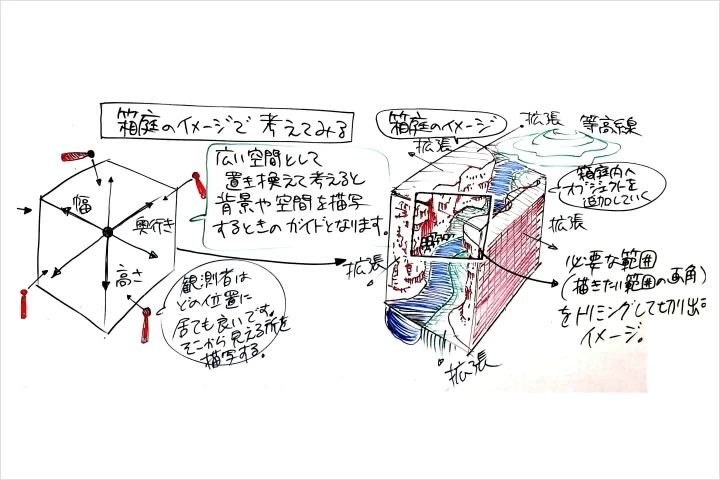 箱庭のイメージで考えてみる
広い空間として
置き換えて考えると
背景や空間を描写
するときのガイドとなります。
幅
奥行き
高さ
観測者は
どの位置に
居ても良いです。
そこから見える所を
描写する。
箱庭のイメージ
拡張
拡張
等高線
箱庭内へ
オブジェクトを
追加していく
拡張
拡張
視野
必要な範囲
(描きたい範囲の画角)
をトリミングして切り出す
イメージ。
拡張